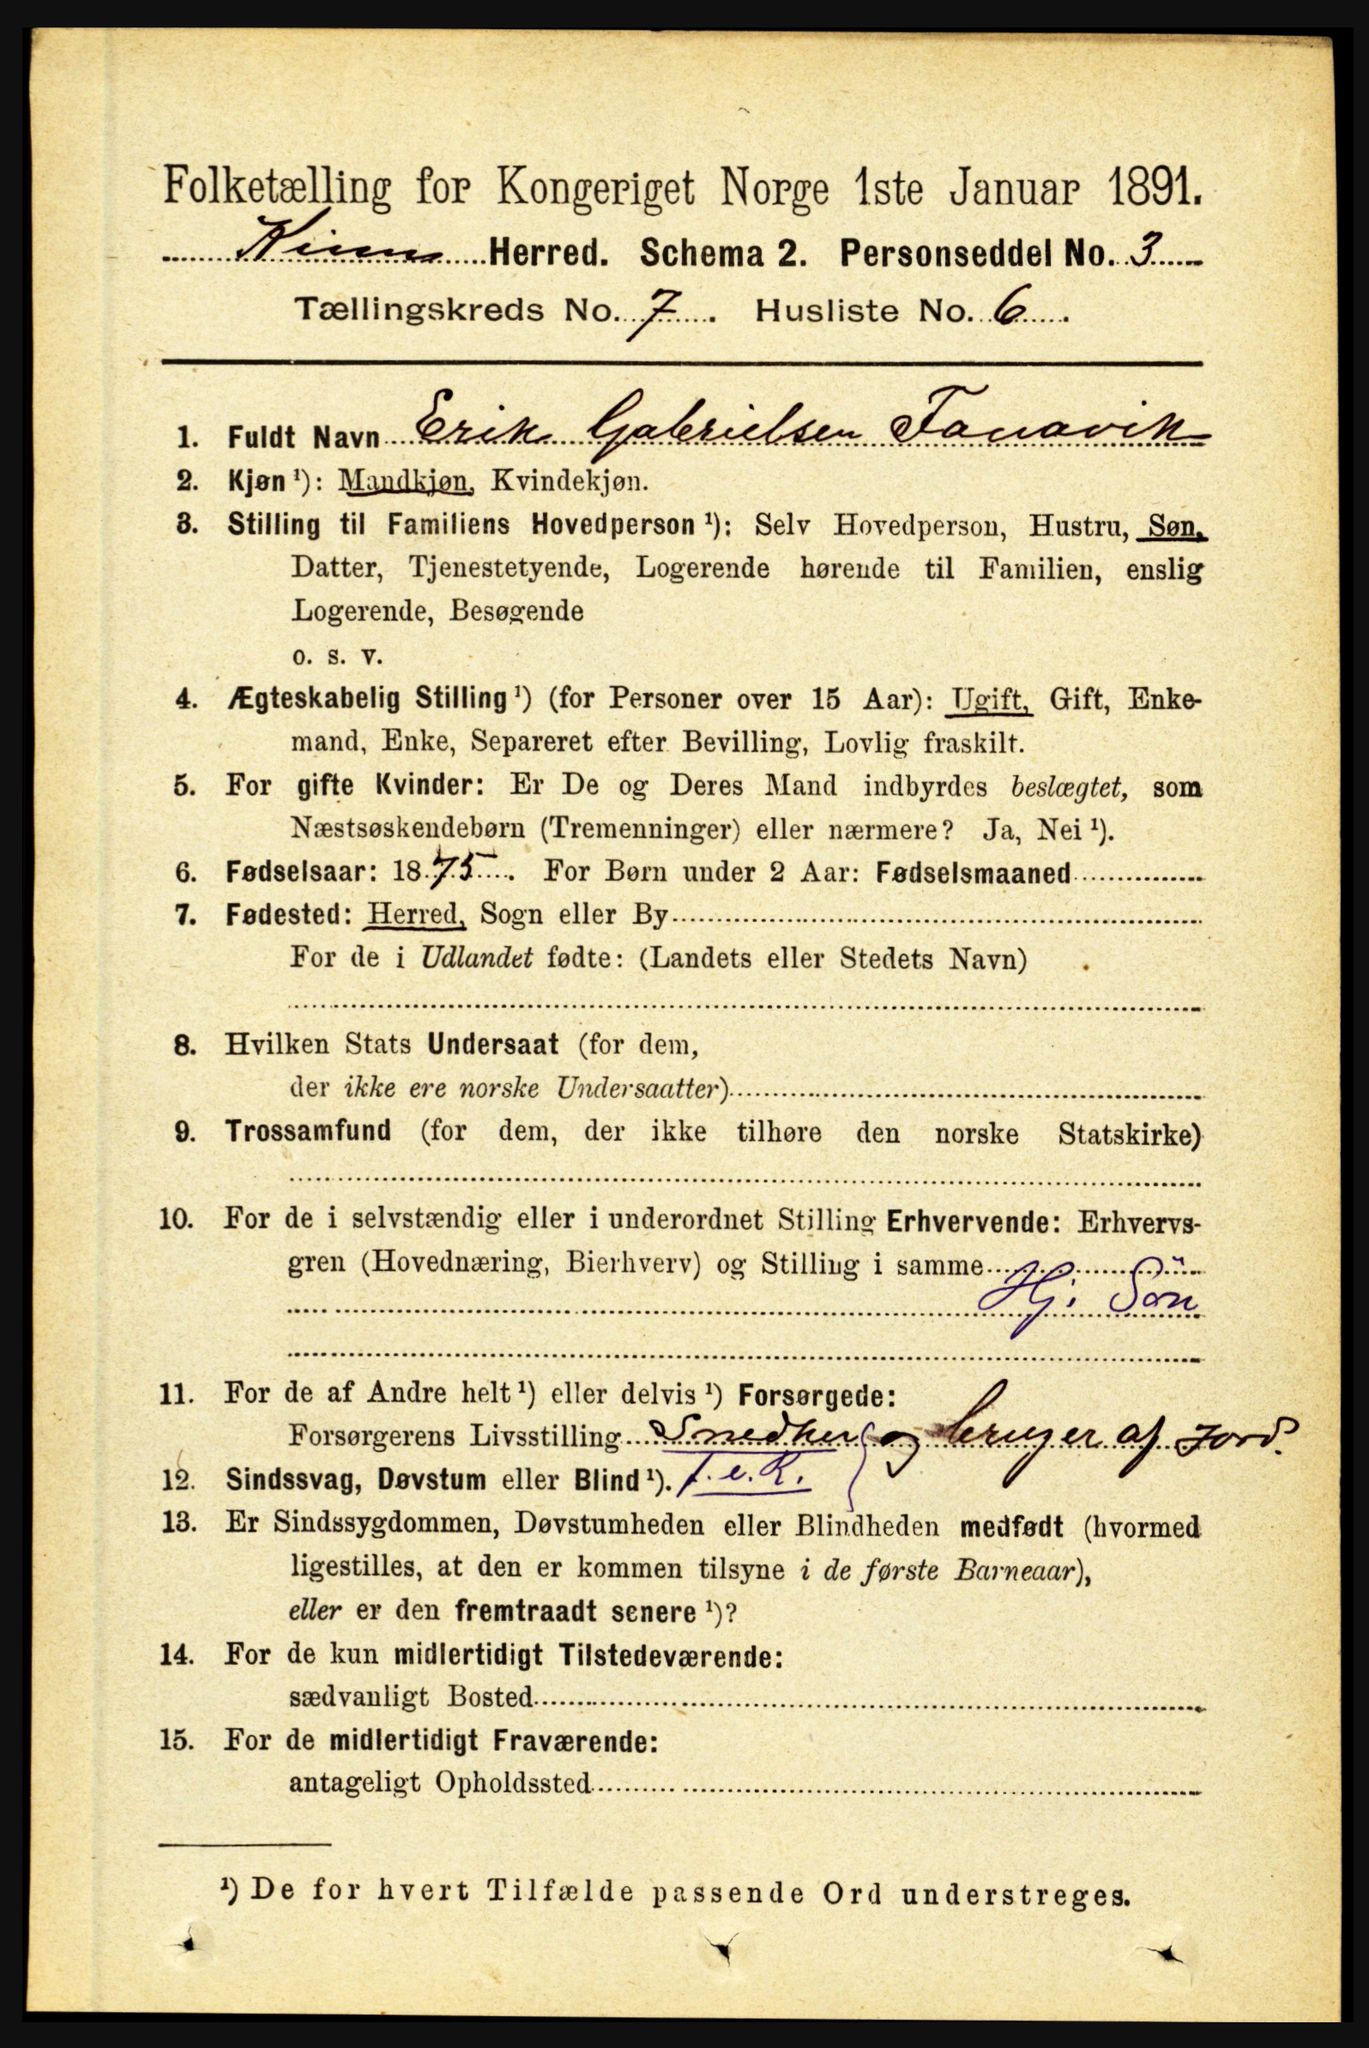 Folketælling for Kongeriget Norge 1ste Januar 1891.
Kinn Herred. Schema 2. Personseddel No. 3
Tællingskreds No. 7. Husliste No. 6.
1. Fuldt Navn Erik Gabrielsen Fanavik
2. Kjøn ¹): Mandkjøn, Kvindekjøn.
3. Stilling til Familiens Hovedperson ¹): Selv Hovedperson, Hustru, Søn,
Datter, Tjenestetyende, Logerende hørende til Familien, enslig
Logerende, Besøgende
o. s. v.
4. Ægteskabelig Stilling ¹) (for Personer over 15 Aar): Ugift, Gift, Enke-
mand, Enke, Separeret efter Bevilling, Lovlig fraskilt.
5. For gifte Kvinder: Er De og Deres Mand indbyrdes beslægtet, som
Næstsøskendebørn (Tremenninger) eller nærmere? Ja, Nei ¹).
6. Fødselsaar: 1875. For Børn under 2 Aar: Fødselsmaaned
7. Fødested: Herred, Sogn eller By
For de i Udlandet fødte: (Landets eller Stedets Navn)
8. Hvilken Stats Undersaat (for dem,
der ikke ere norske Undersaatter)
9. Trossamfund (for dem, der ikke tilhøre den norske Statskirke)
10. For de i selvstændig eller i underordnet Stilling Erhvervende: Erhvervs-
gren (Hovednæring, Bierhverv) og Stilling i samme
Hj. Søn
11. For de af Andre helt ¹) eller delvis ¹) Forsørgede:
Forsørgerens Livsstilling Snedker og bruger af Jord.
12. Sindssvag, Døvstum eller Blind ¹). f. e. R.
13. Er Sindssygdommen, Døvstumheden eller Blindheden medfødt (hvormed
ligestilles, at den er kommen tilsyne i de første Barneaar),
eller er den fremtraadt senere ¹)?
14. For de kun midlertidigt Tilstedeværende:
sædvanligt Bosted
15. For de midlertidigt Fraværende:
antageligt Opholdssted
¹) De for hvert Tilfælde passende Ord understreges.